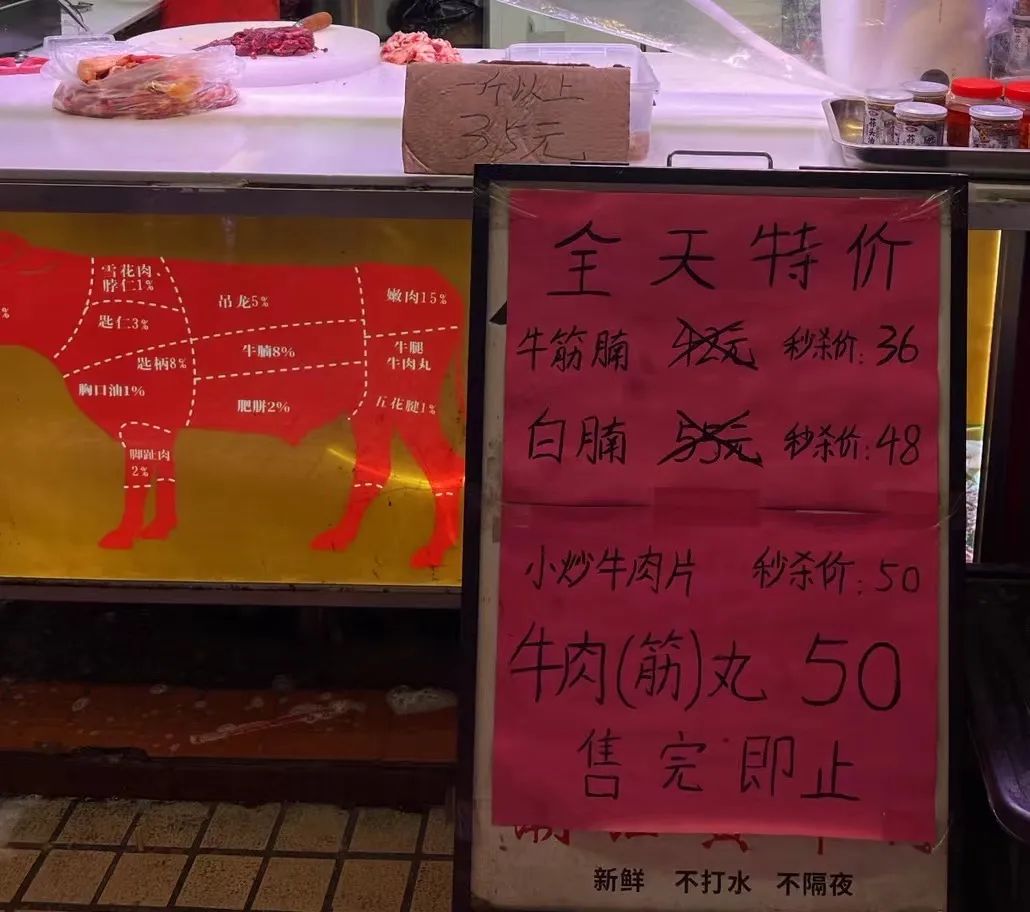 一斤以上
35元
全天特价
牛筋腩 42元 秒杀价:36
白腩 55元 秒杀价:48
小炒牛肉片 秒杀价:50
牛肉(筋)丸 50
售完即止
新鲜 不打水 不隔夜
雪花肉、
脖仁1%
匙仁3%
匙柄8%
胸口油1%
脚趾肉
2%
吊龙5%
牛腩8%
肥胼2%
嫩肉15%
牛腿
牛肉丸
五花腱1%
%